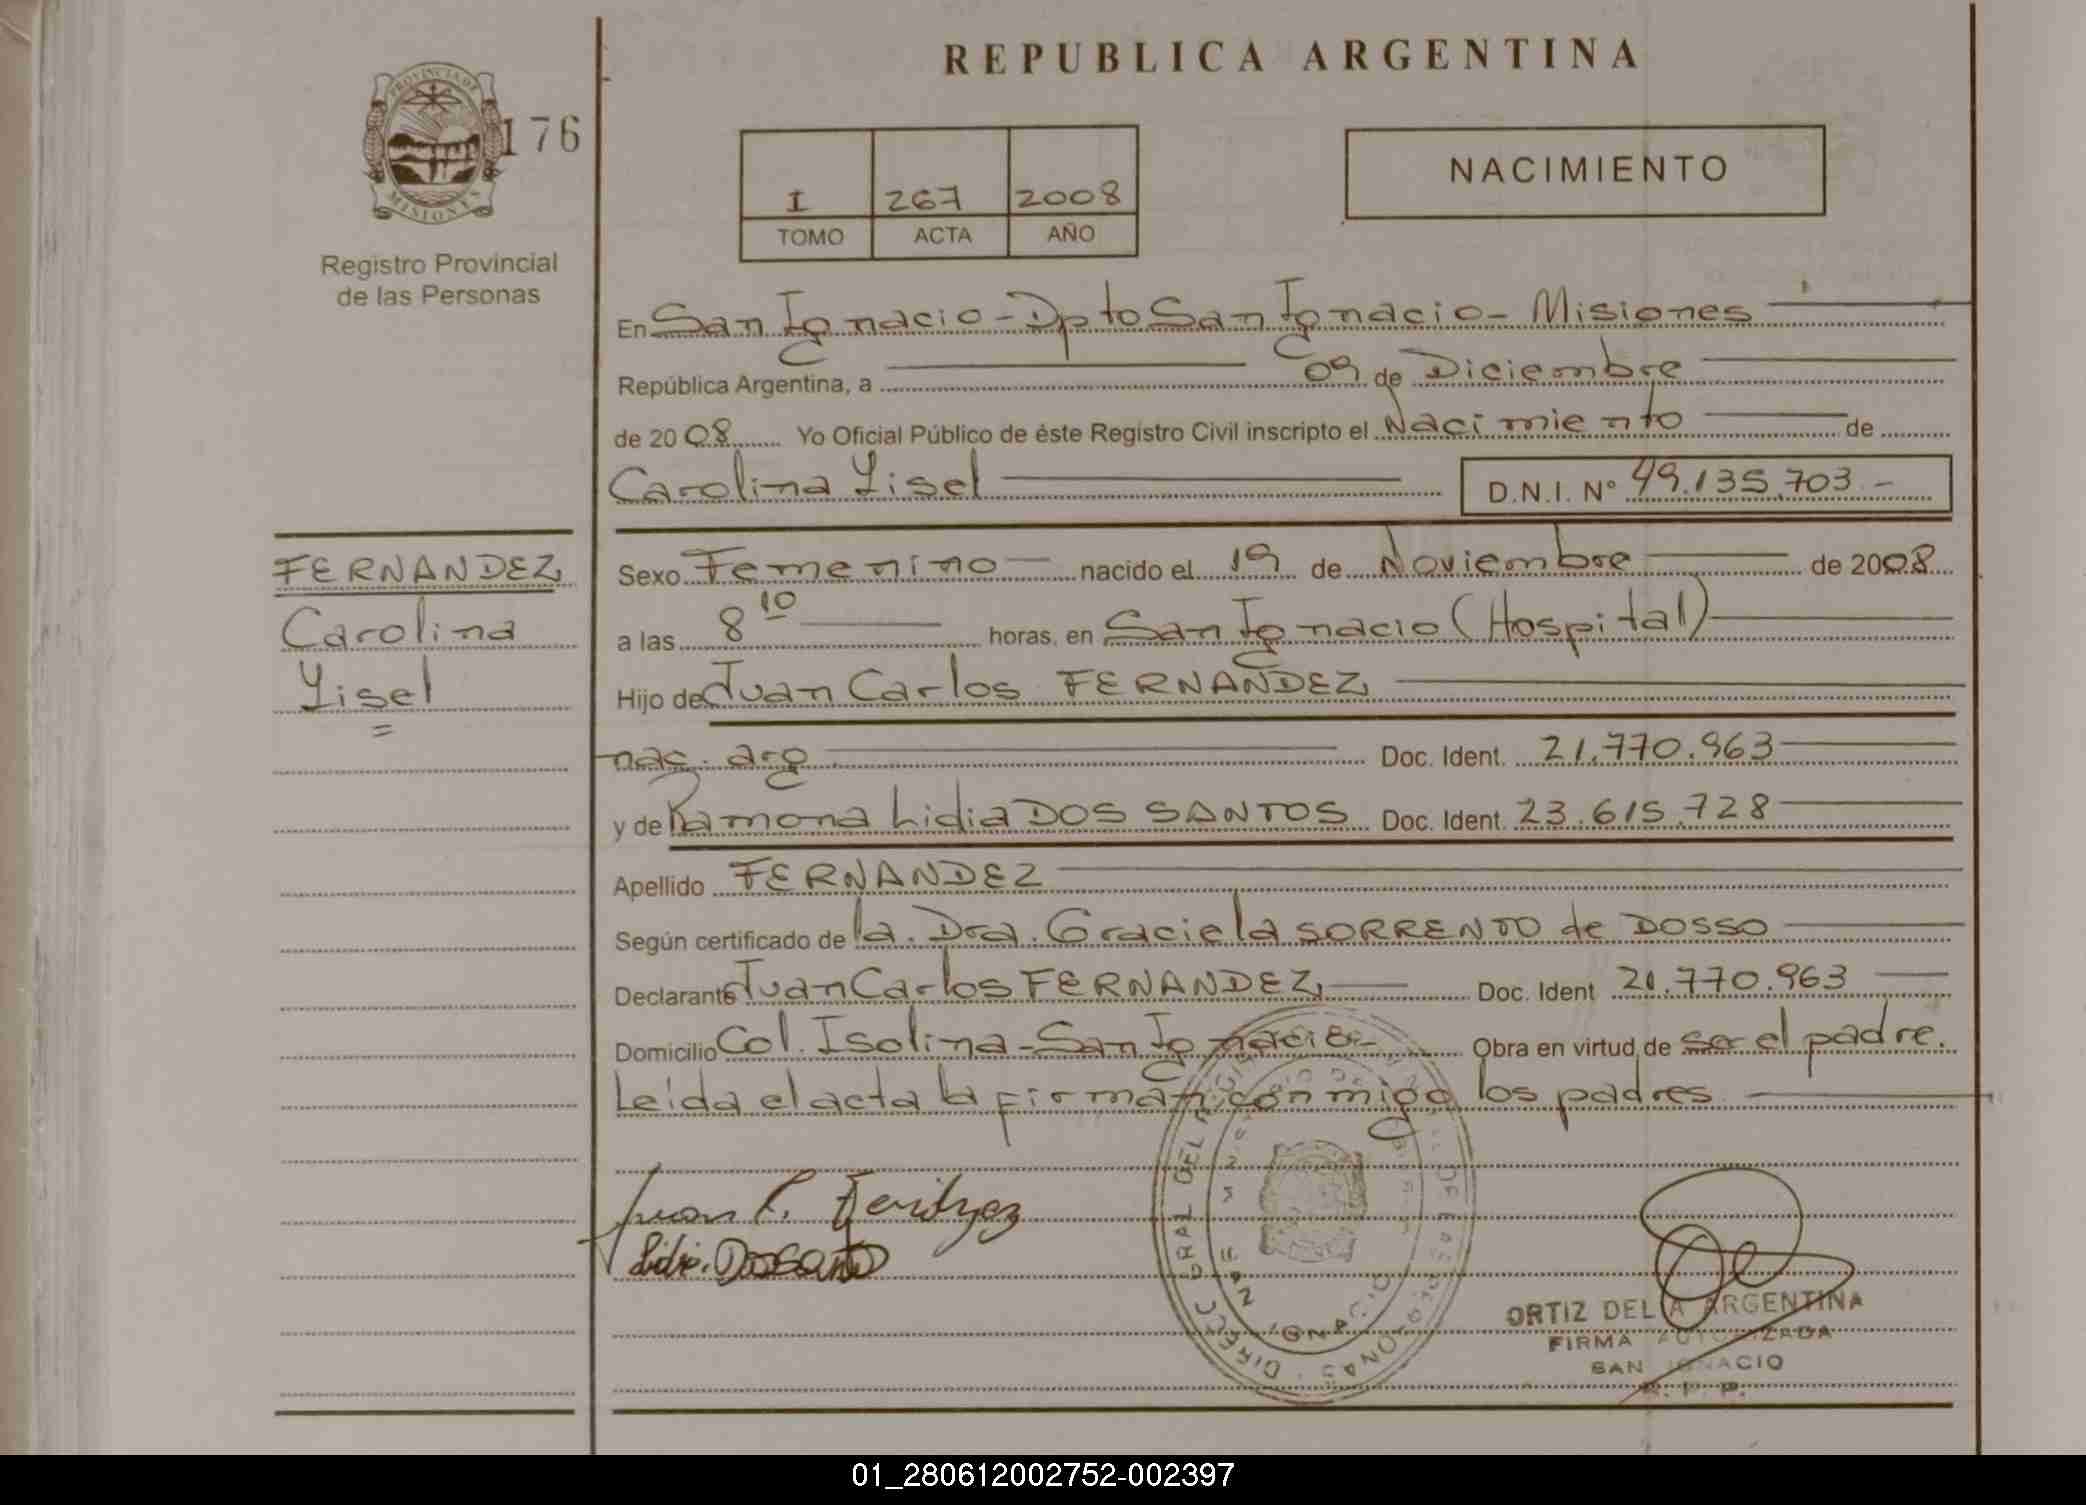 REPUBLICA ARGENTINA
PROVINCIA DE
MISIONES
176
Registro Provincial
de las Personas
I 267 2008
TOMO ACTA AÑO
NACIMIENTO
En San Ignacio - Dpto San Ignacio - Misiones
República Argentina, a 09 de Diciembre
de 2008 Yo Oficial Público de éste Registro Civil inscripto el Nacimiento de
Carolina Yisel D.N.I. Nº 49.135.703.-
FERNANDEZ
Carolina
Yisel
Sexo Femenino nacido el 19 de Noviembre de 2008
a las 8 10 horas, en San Ignacio (Hospital)
Hijo de Juan Carlos FERNANDEZ
nac. arg Doc. Ident. 21.770.963
y de Ramona Lidia DOS SANTOS Doc. Ident. 23.615.728
Apellido FERNANDEZ
Según certificado de la. Dra. Graciela SORRENTO de DOSSO
Declarante Juan Carlos FERNANDEZ Doc. Ident 21.770.963
Domicilio Col. Isolina - San Ignacio - Obra en virtud de ser el padre.
Leída el acta la firman conmigo los padres
Juan C.
Lidia Dos Santos
DIRECC GRAL DEL
IGNACIO
ORTIZ DELIA ARGENTINA
FIRMA AUTORIZADA
SAN IGNACIO
R. P. P.
01_280612002752-002397